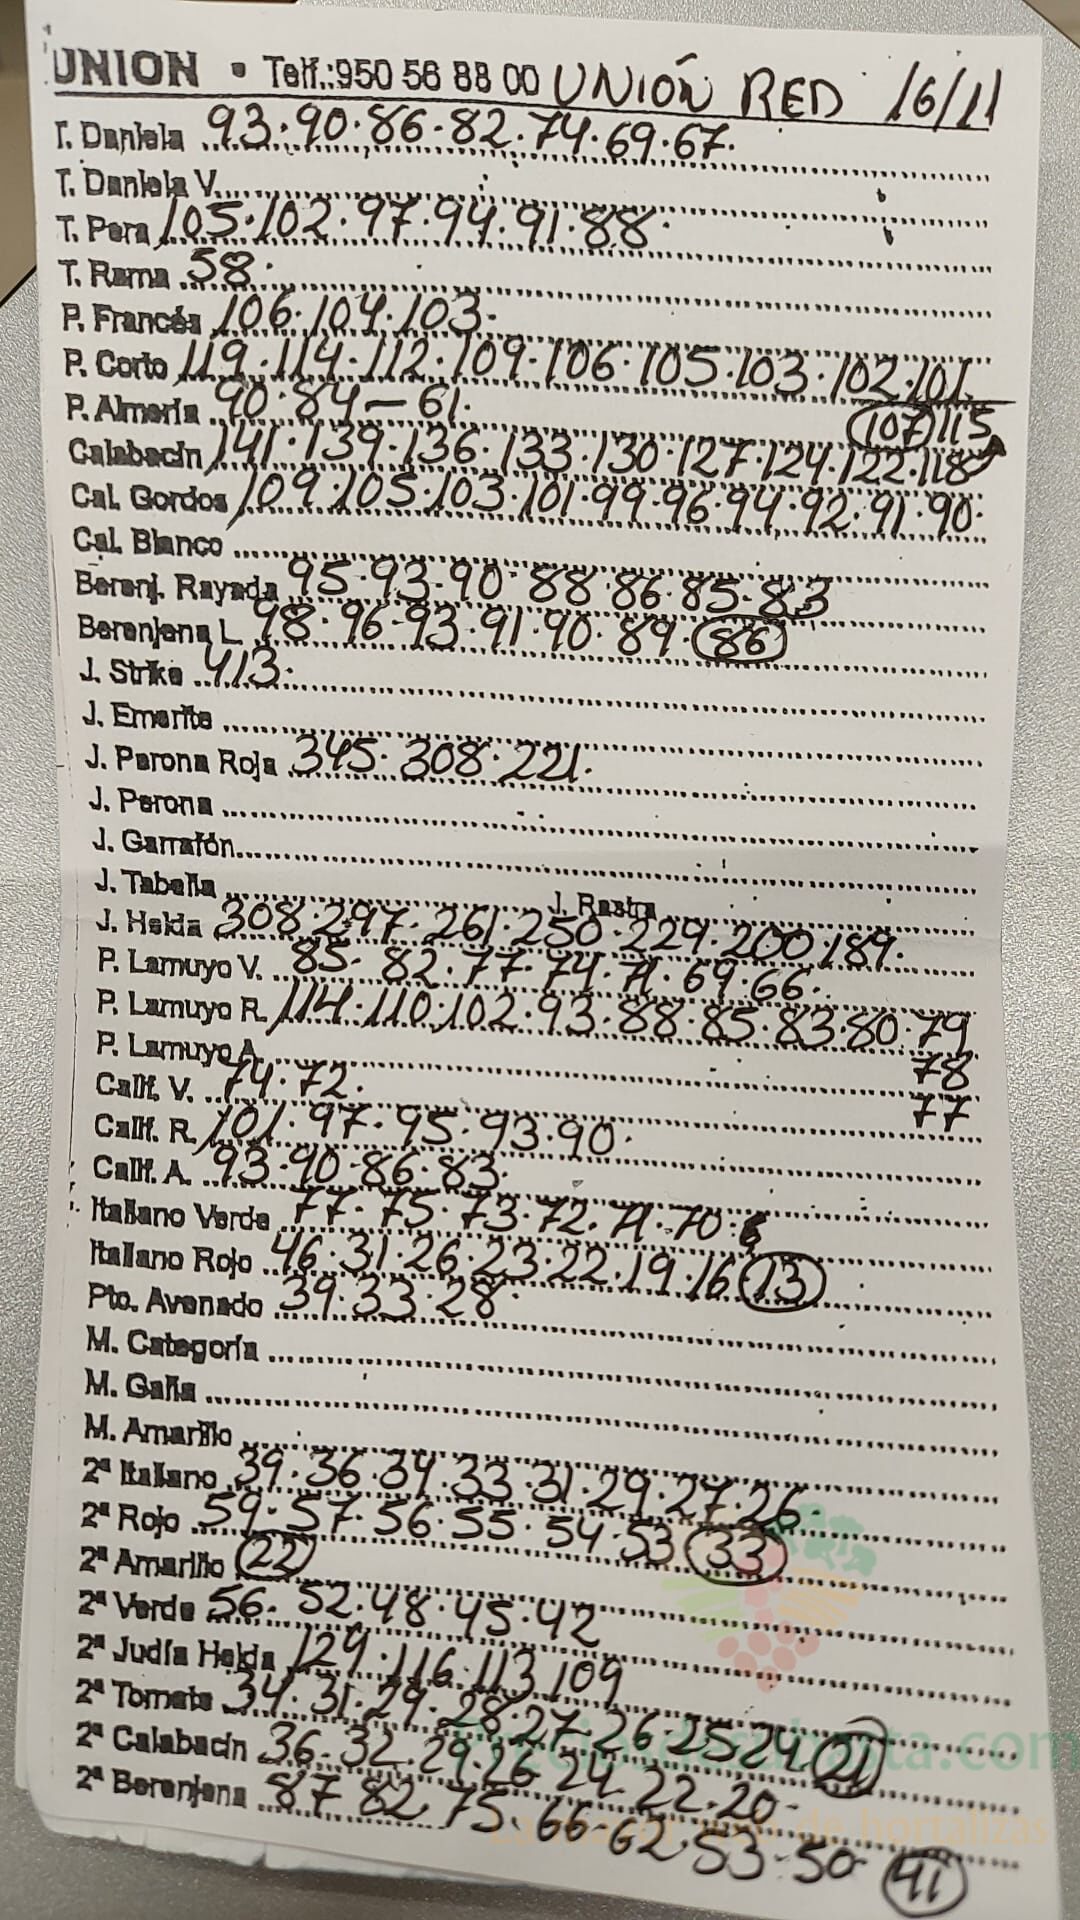 UNION • Telf.:950 56 88 00 UNIÓN RED 16/11
T. Daniela 93.90.86-82.74.69.67.
T. Daniela V.
T. Pera 105.102.97.94.91.88.
T. Rama 58.
P. Francés 106.104.103.
P. Corto 119.114.112.109.106.105.103.102.101
P. Almería 90.84-61. (107) 115
Calabacín 141.139.136.133.130.127.124.122.118
Cal. Gordos 109.105.103.101.99.96.94.92.91.90.
Cal. Blanco
Berenj. Rayada 95.93.90.88.86.85.83
Berenjena L. 98.96.93.91.90.89.(86)
J. Strike 413.
J. Emerite
J. Perona Roja 345.308.221.
J. Perona
J. Garrafón
J. Tabella J. Rastra
J. Helda 308.297.261.250.229.200.189.
P. Lamuyo V. 85.82.77.74.71.69.66.
P. Lamuyo R. 114.110.102.93.88.85.83.80.79
P. Lamuyo A. 78
Calif. V. 74.72. 77
Calif. R. 101.97.95.93.90.
Calif. A. 93.90.86.83.
Italiano Verde 77.75.73.72.71.70.
Italiano Rojo 46.31.26.23.22.19.16 (13)
Pto. Avenado 39.33.28.
M. Categoría
M. Galia
M. Amarillo
2ª Italiano 39.36.34.33.31.29.27.26.
2ª Rojo 59.57.56.55.54.53 (33)
2ª Amarillo (22)
2ª Verde 56.52.48.45.42
2ª Judía Helda 129.116.113 109
2ª Tomate 34.31.29.28.27.26.25 24 (21)
2ª Calabacín 36.32.29.26 24 22.20.
2ª Berenjena 87 82.75.66.62.53.50. (41)